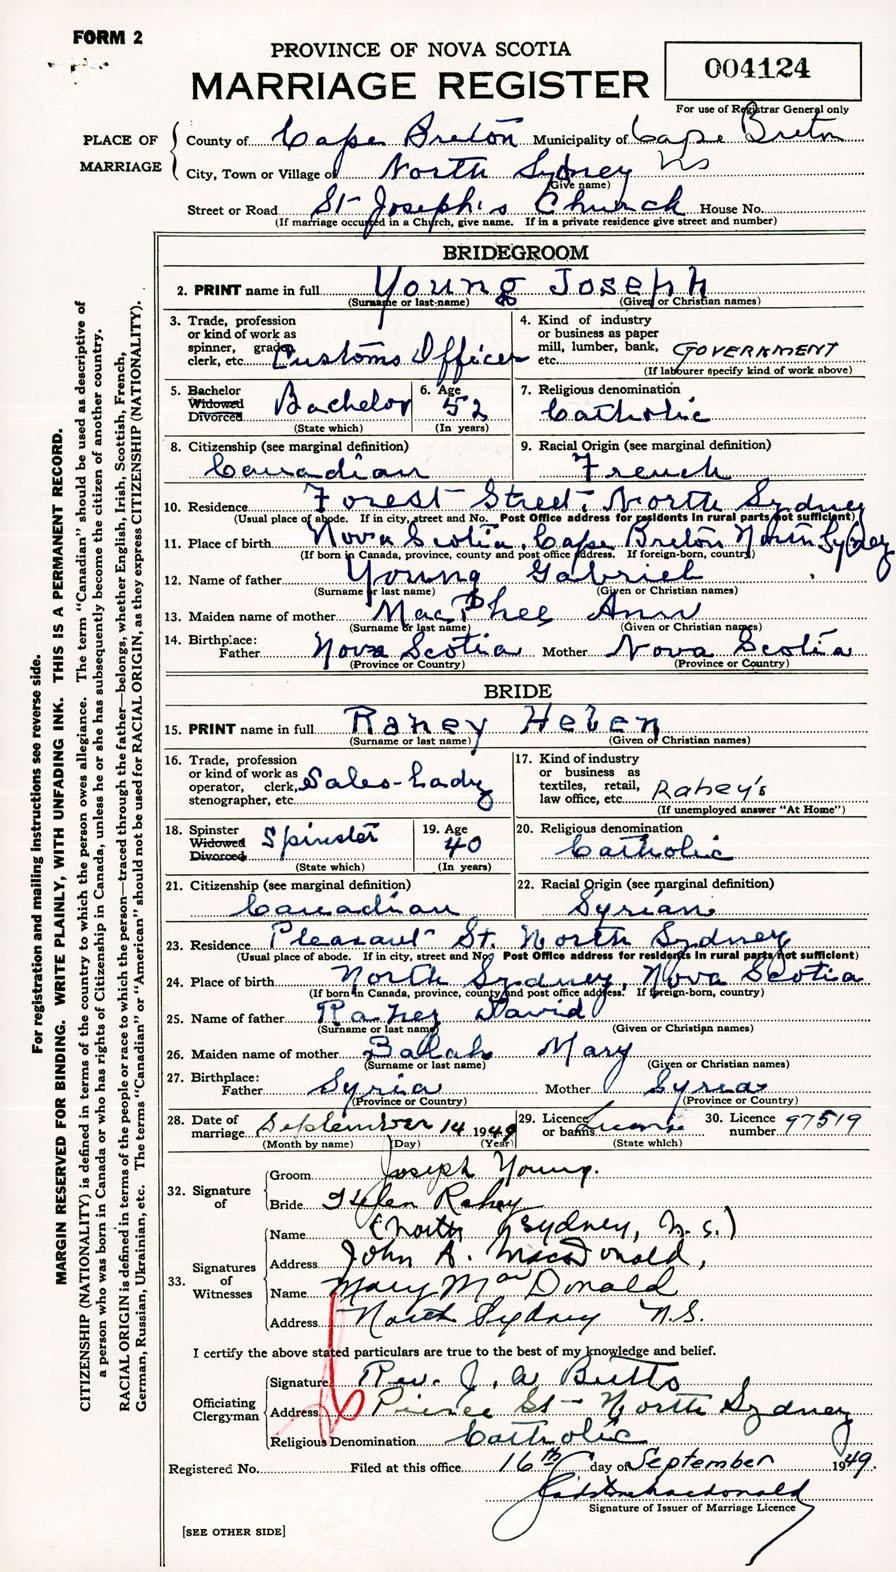 FORM 2
PROVINCE OF NOVA SCOTIA
MARRIAGE REGISTER
004124
For use of Registrar General only
PLACE OF MARRIAGE
County of Cape Breton Municipality of Cape Breton
City, Town or Village of North Sydney NS
(Give name)
Street or Road St Joseph's Church House No.
(If marriage occurred in a Church, give name. If in a private residence give street and number)
BRIDEGROOM
2. PRINT name in full Young Joseph
(Surname or last name) (Given or Christian names)
3. Trade, profession or kind of work as spinner, grader, clerk, etc. Customs Officer
4. Kind of industry or business as paper mill, lumber, bank, etc. GOVERNMENT
(If labourer specify kind of work above)
5. Bachelor Widowed Divorced Bachelor
(State which)
6. Age 52
(In years)
7. Religious denomination
Catholic
8. Citizenship (see marginal definition)
Canadian
9. Racial Origin (see marginal definition)
French
10. Residence Forest Street, North Sydney
(Usual place of abode. If in city, street and No. Post Office address for residents in rural parts not sufficient)
11. Place of birth Nova Scotia, Cape Breton North Sydney
(If born in Canada, province, county and post office address. If foreign-born, country)
12. Name of father Young Gabriel
(Surname or last name) (Given or Christian names)
13. Maiden name of mother MacPhee Ann
(Surname or last name) (Given or Christian names)
14. Birthplace:
Father Nova Scotia Mother Nova Scotia
(Province or Country) (Province or Country)
BRIDE
15. PRINT name in full Rahey Helen
(Surname or last name) (Given or Christian names)
16. Trade, profession or kind of work as operator, clerk, stenographer, etc. Sales-Lady
17. Kind of industry or business as textiles, retail, law office, etc. Rahey's
(If unemployed answer "At Home")
18. Spinster Widowed Divorced Spinster
(State which)
19. Age 40
(In years)
20. Religious denomination
Catholic
21. Citizenship (see marginal definition)
Canadian
22. Racial Origin (see marginal definition)
Syrian
23. Residence Pleasant St. North Sydney
(Usual place of abode. If in city, street and No. Post Office address for residents in rural parts not sufficient)
24. Place of birth North Sydney, Nova Scotia
(If born in Canada, province, county and post office address. If foreign-born, country)
25. Name of father Rahey David
(Surname or last name) (Given or Christian names)
26. Maiden name of mother Balah Mary
(Surname or last name) (Given or Christian names)
27. Birthplace:
Father Syria Mother Syria
(Province or Country) (Province or Country)
28. Date of marriage September 14 1949
(Month by name) (Day) (Year)
29. Licence or banns License
(State which)
30. Licence number 97519
32. Signature of
Groom Joseph Young.
Bride Helen Rahey
33. Signatures of Witnesses
Name (North Sydney, N.S.)
Address John A. MacDonald,
Name Mary MacDonald
Address North Sydney N.S.
I certify the above stated particulars are true to the best of my knowledge and belief.
Officiating Clergyman
Signature Rev. J. A Butts
Address Pierce St - North Sydney
Religious Denomination Catholic
Registered No. Filed at this office 16th day of September 1949.
Signature of Issuer of Marriage Licence
[SEE OTHER SIDE]
For registration and mailing instructions see reverse side.
MARGIN RESERVED FOR BINDING. WRITE PLAINLY, WITH UNFADING INK. THIS IS A PERMANENT RECORD.
CITIZENSHIP (NATIONALITY) is defined in terms of the country to which the person owes allegiance. The term "Canadian" should be used as descriptive of
a person who was born in Canada or who has rights of Citizenship in Canada, unless he or she has subsequently become the citizen of another country.
RACIAL ORIGIN is defined in terms of the people or race to which the person—traced through the father—belongs, whether English, Irish, Scottish, French,
German, Russian, Ukrainian, etc. The terms "Canadian" or "American" should not be used for RACIAL ORIGIN, as they express CITIZENSHIP (NATIONALITY).